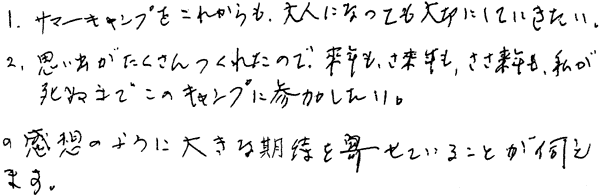 1. サマーキャンプをこれからも、大人になっても大切にしていきたい。
2. 思い出がたくさんつくれたので、来年も、さ来年も、ささ来年も、私が
死ぬまでこのキャンプに参加したい。
の感想のように大きな期待を寄せていることが伺え
ます。